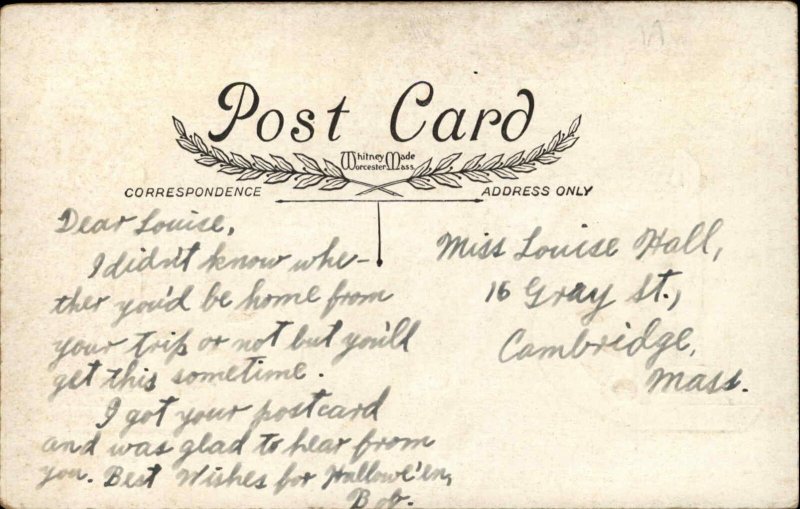 Post Card
Whitney Made
Worcester Mass.
CORRESPONDENCE
ADDRESS ONLY
Dear Louise,
I didn't know whe-
ther you'd be home from
your trip or not but you'll
get this sometime.
I got your postcard
and was glad to hear from
you. Best Wishes for Hallowe'en,
Bob.
Miss Louise Hall,
16 Gray St.,
Cambridge,
Mass.